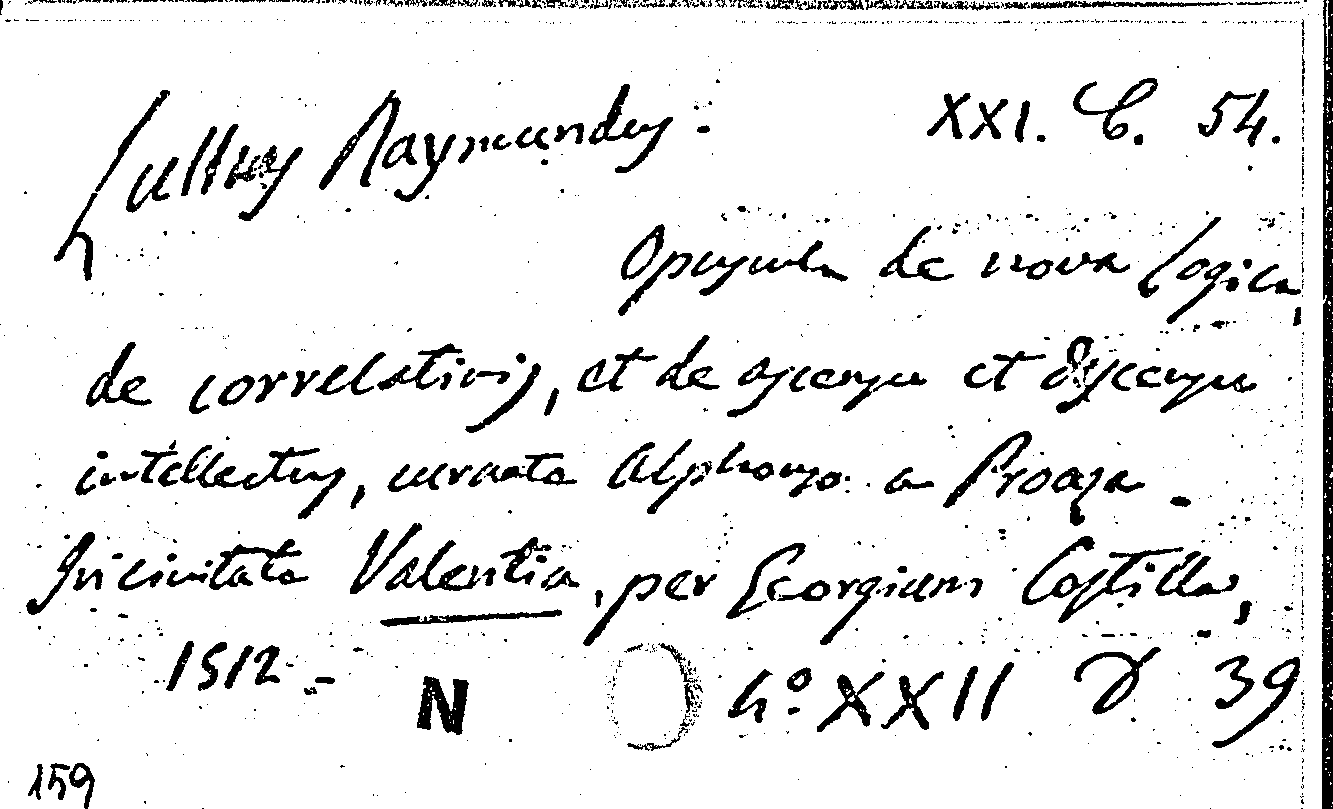 Lullus Raymundus. XXI. C. 54.
Opuscula de nova logica,
de correlativis, et de ascensu et descensu
intellectus, curaata Alphonso a Proaza.
In civitate Valentia, per Georgium Costilla,
1512.-
N 4º XXII D 39
159